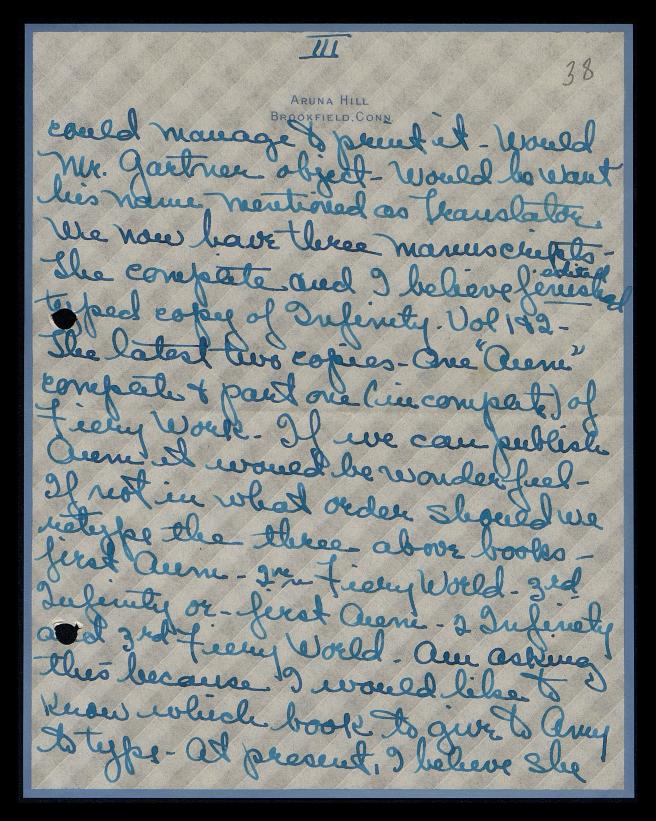 III
38
ARUNA HILL
BROOKFIELD, CONN
could manage to print it - Would
Mr. Gartner object - Would he want
his name mentioned as translator.
We now have three manuscripts -
The complete and I believe finished edited
typed copy of Infinity. Vol 1 & 2 -
The latest two copies - One "Aum"
complete & part one (incomplete) of
Fiery World. If we can publish
Aum it would be wonderful -
If not in what order should we
retype the three above books -
first Aum - 2nd Fiery World - 3rd
Infinity or - first Aum - 2 Infinity
and 3rd Fiery World. Am asking
this because I would like to
know which book to give to Amy
to type - At present, I believe she